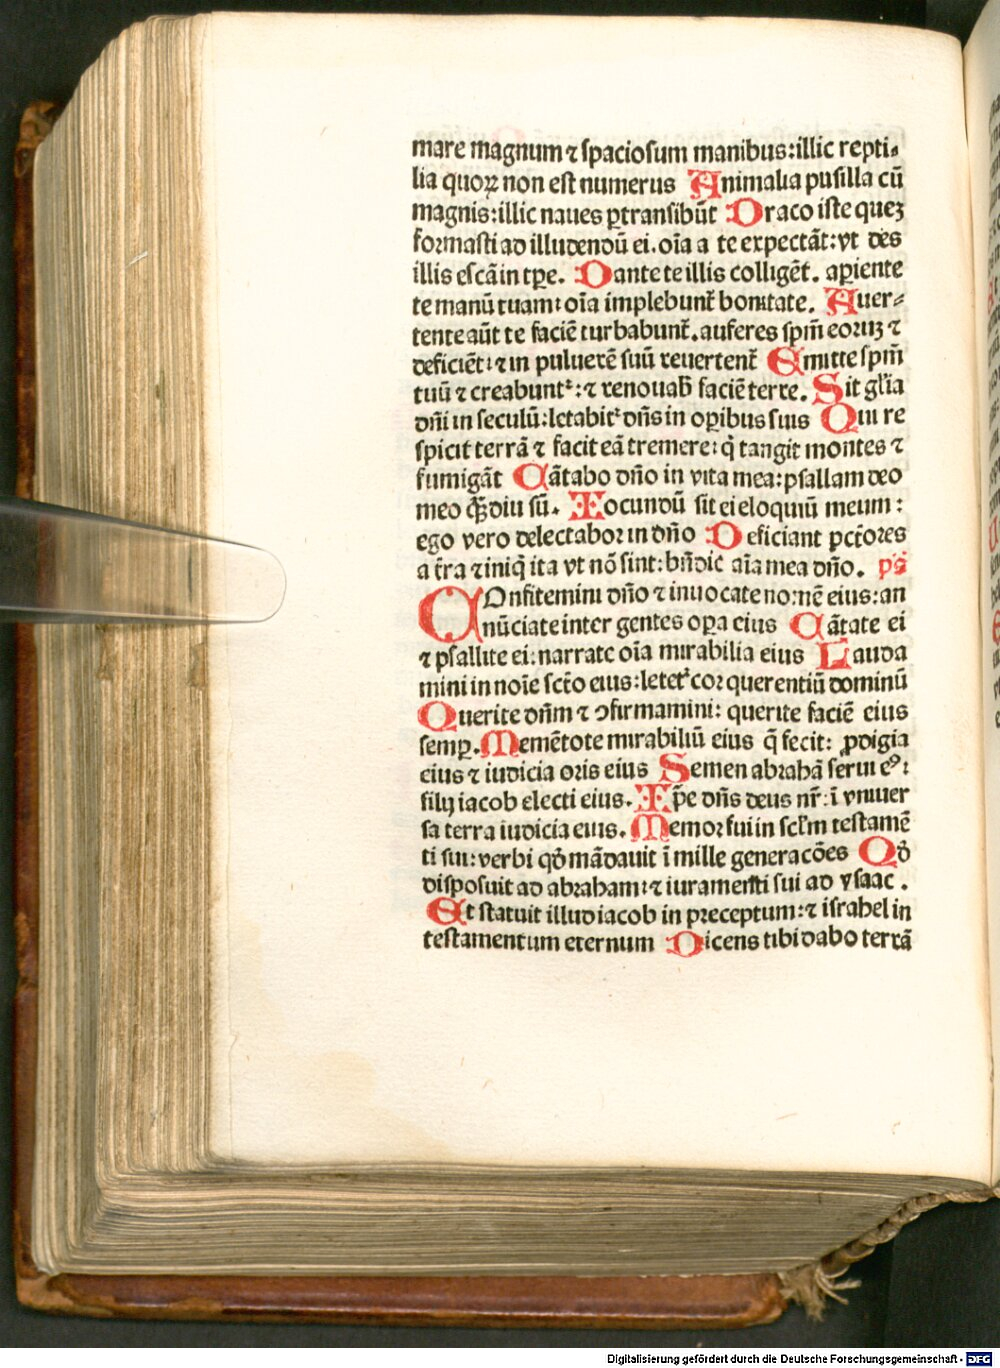 mare magnum ⁊ spaciosum manibus: illic repti⸗
lia quoꝝ non est numerus Animalia pusilla cũ
magnis: illic naues ꝑtransibũt Draco iste queʒ
formasti ad illudendũ ei. oĩa a te expectãt: vt des
illis escã in tꝑe. Dante te illis colligẽt. aꝑiente
te manũ tuam: oĩa implebunt᷑ bonitate. Auer⸗
tente aũt te faciẽ turbabunt᷑. auferes spm̃ eoruʒ ⁊
deficiẽt: ⁊ in puluerẽ suũ reuertent᷑ Emitte spm̃
tuũ ⁊ creabunt᷑: ⁊ renouab̃ faciẽ terre. Sit gl̃ia
dñi in seculũ: letabit᷑ dñs in oꝑibus suis Qui re
spicit terrã ⁊ facit eã tremere: q̃ tangit montes ⁊
fumigãt Cãtabo dño in vita mea: psallam deo
meo q̃ᷓdiu sũ. Iocundũ sit ei eloquiũ meum:
ego vero delectabor in dño Deficiant pctõres
a tr̃a ⁊ iniq̃ ita vt nõ sint: bñdic̃ aĩa mea dño. ps̃
COnfitemini dño ⁊ inuocate nomẽ eius: an
nũciate inter gentes oꝑa eius Cãtate ei
⁊ psallite ei: narrate oĩa mirabilia eius Lauda
mini in noĩe sct̃o eius: letet᷑ cor querentiũ dominũ
Querite dñm ⁊ ↄfirmamini: querite faciẽ eius
semꝑ. Memẽtote mirabiliũ eius q̃ fecit: ꝓdigia
eius ⁊ iudicia oris eius Semen abrahã serui eꝰ:
filij iacob electi eius. Ip̃e dñs deus nr̃: ĩ vniuer
sa terra iudicia eius. Memor fui in scl̃m testamẽ
ti sui: verbi qd̃ mãdauit ĩ mille generacões Qd̃
disposuit ad abraham: ⁊ iuramenti sui ad ysaac.
Et statuit illud iacob in preceptum: ⁊ israhel in
testamentum eternum Dicens tibi dabo terrã
Digitalisierung gefördert durch die Deutsche Forschungsgemeinschaft - DFG